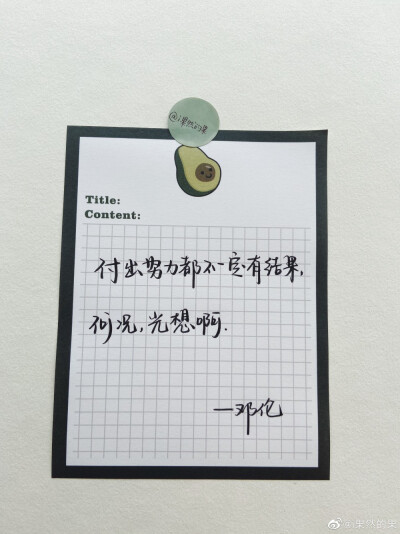 @i果然的果
Title:
Content:
付出努力都不一定有结果,
何况,光想啊.
—邓伦
@i果然的果